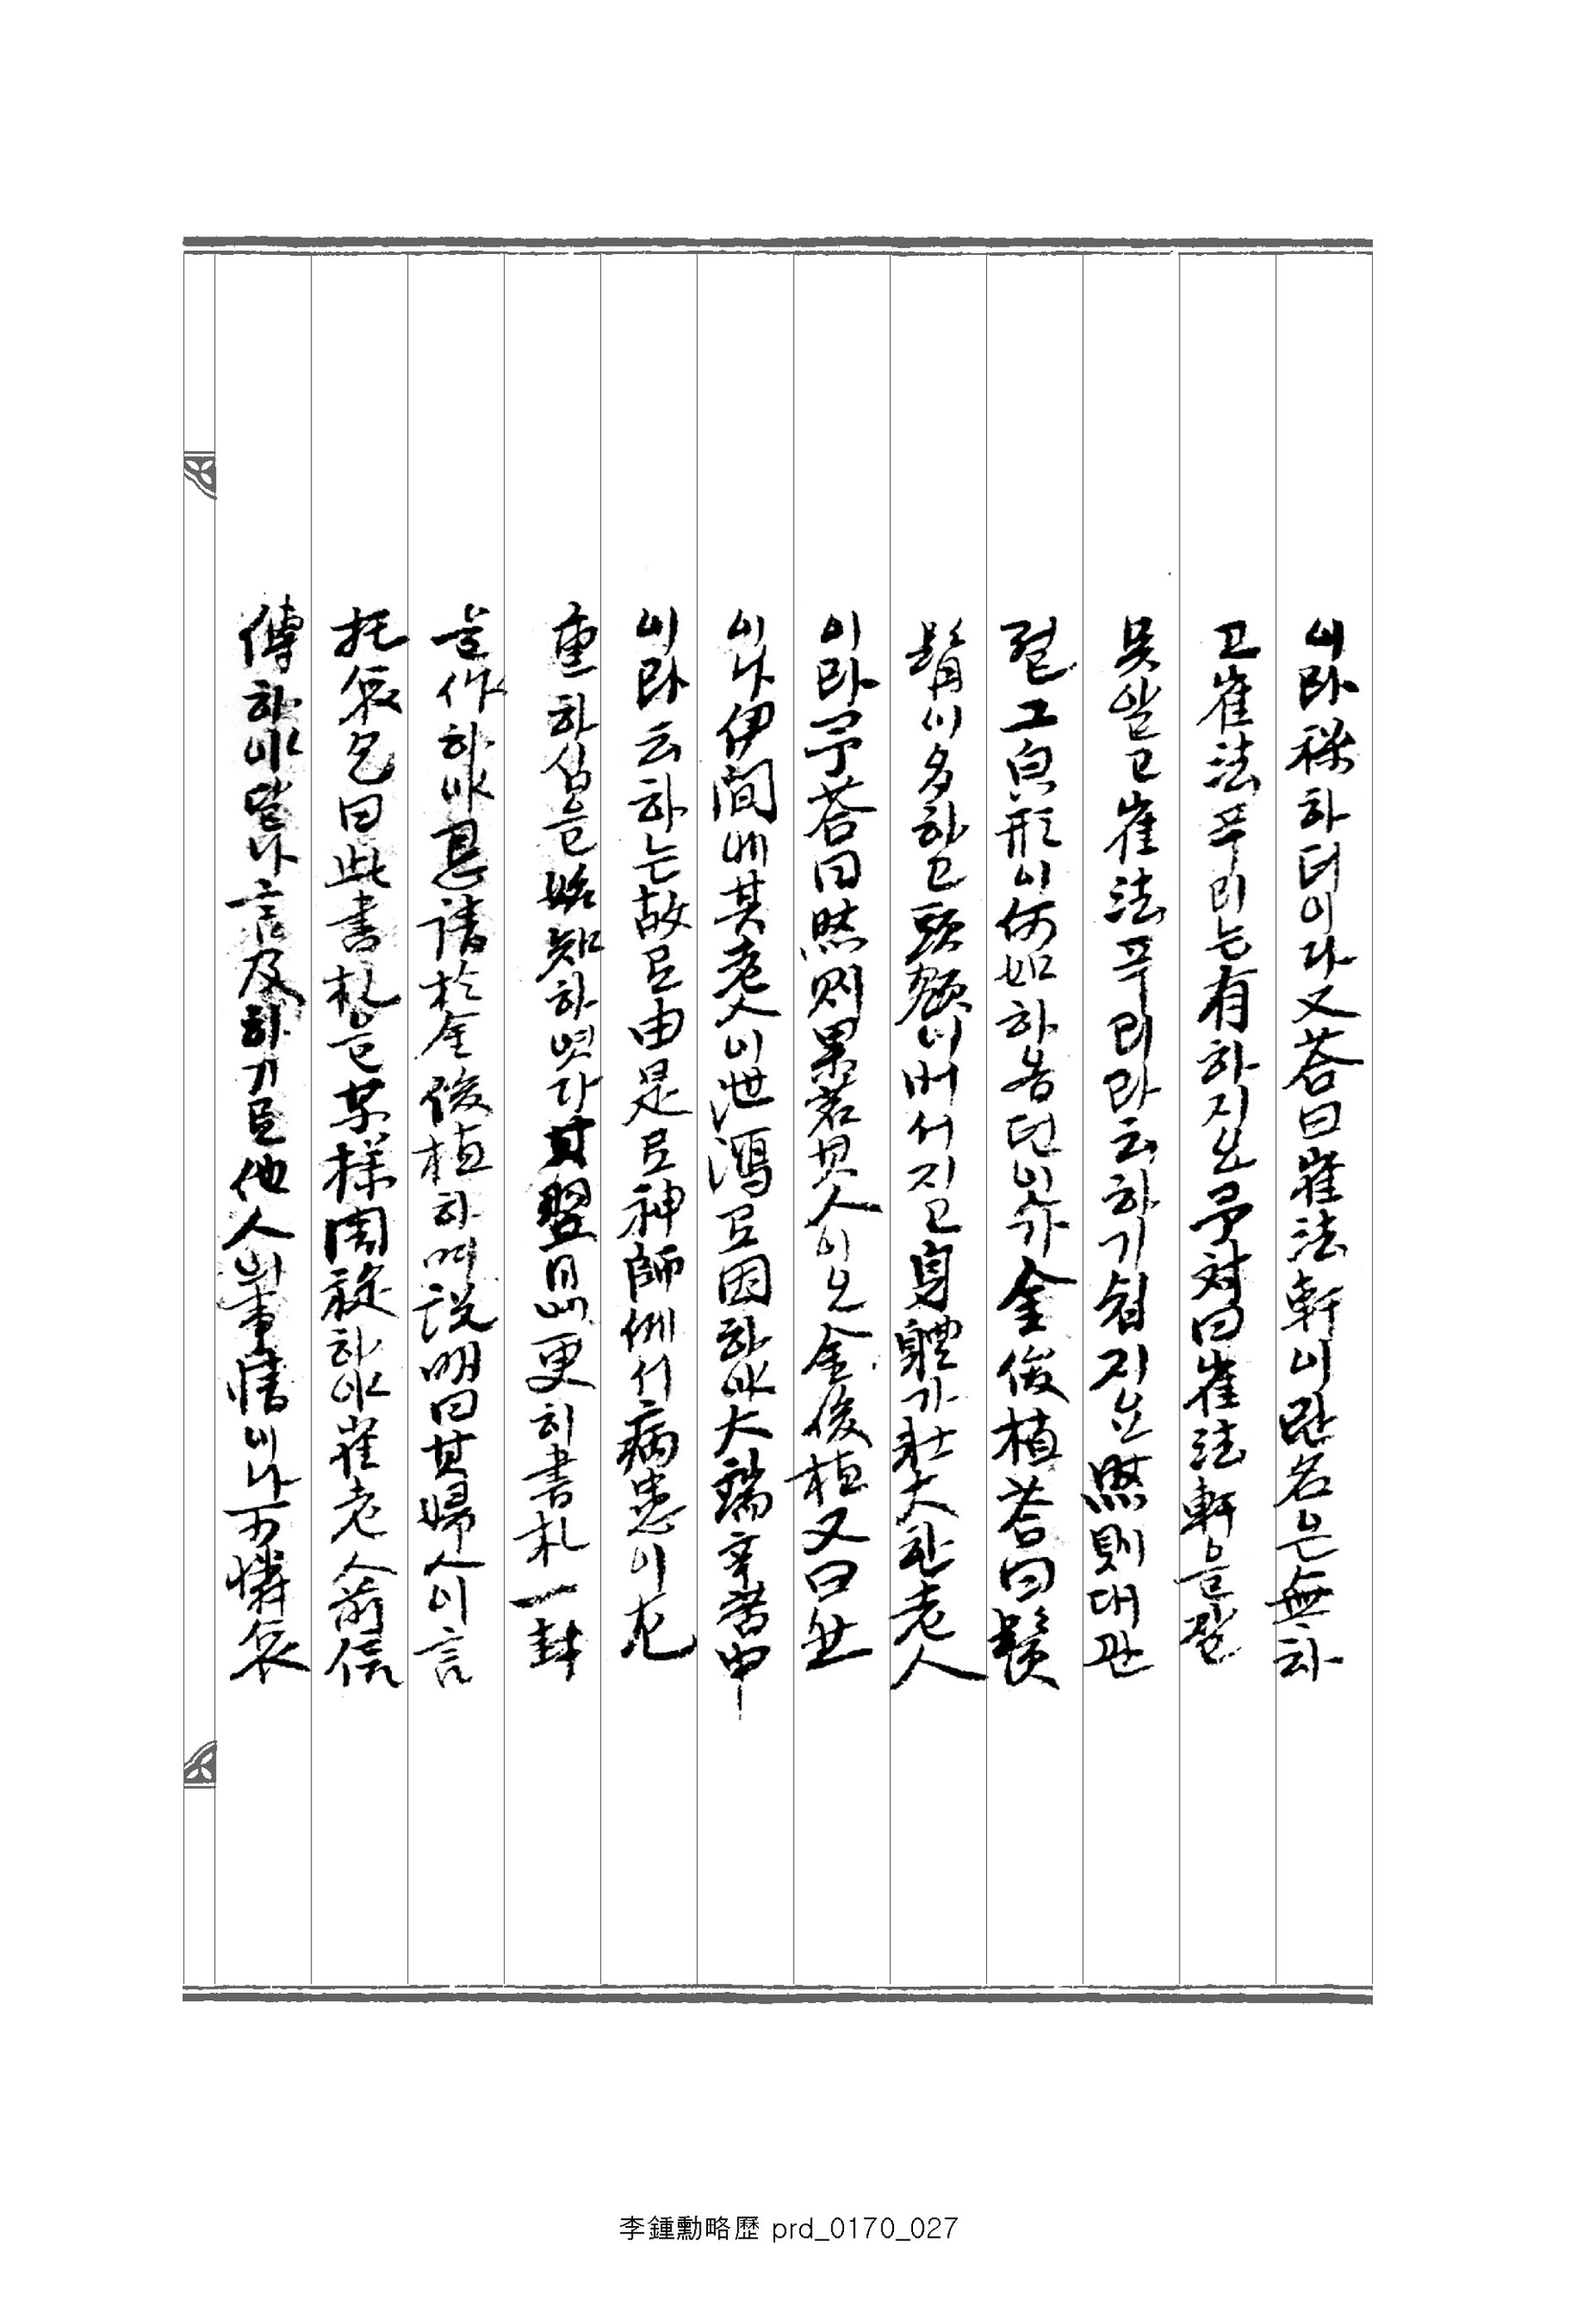 이라 稱하더이다 又答曰崔法軒이란 名은 無하
고 崔法푸리는 有하지오 予対曰崔法軒을 잘
못알고 崔法푸리라 云하기 쉽지오 然則 대관
절 그 貌形이 何如하옵던이가 金俊植答曰 鬚
髥이 多하고 頭額이 버서지고 身體가 壯大한 老人
이라 予答曰然則果若其人이오 金俊植又曰然
이나 伊間에 其老人이 泄瀉로 因하야 大端辛苦中
이라 云하는 故로 由是로 神師에서 病患이 尤
重하심을 始知하엿다 其翌日에 更히 書札一封
을 作하야 恳請於金俊植하며 説明曰 其婦人이 言
托哀乞曰此書札을 某樣周旋하야 崔老人前信
傳하야 달나 言及하기로 他人의 事情이나 可憐哀
李鍾勳略歷 prd_0170_027